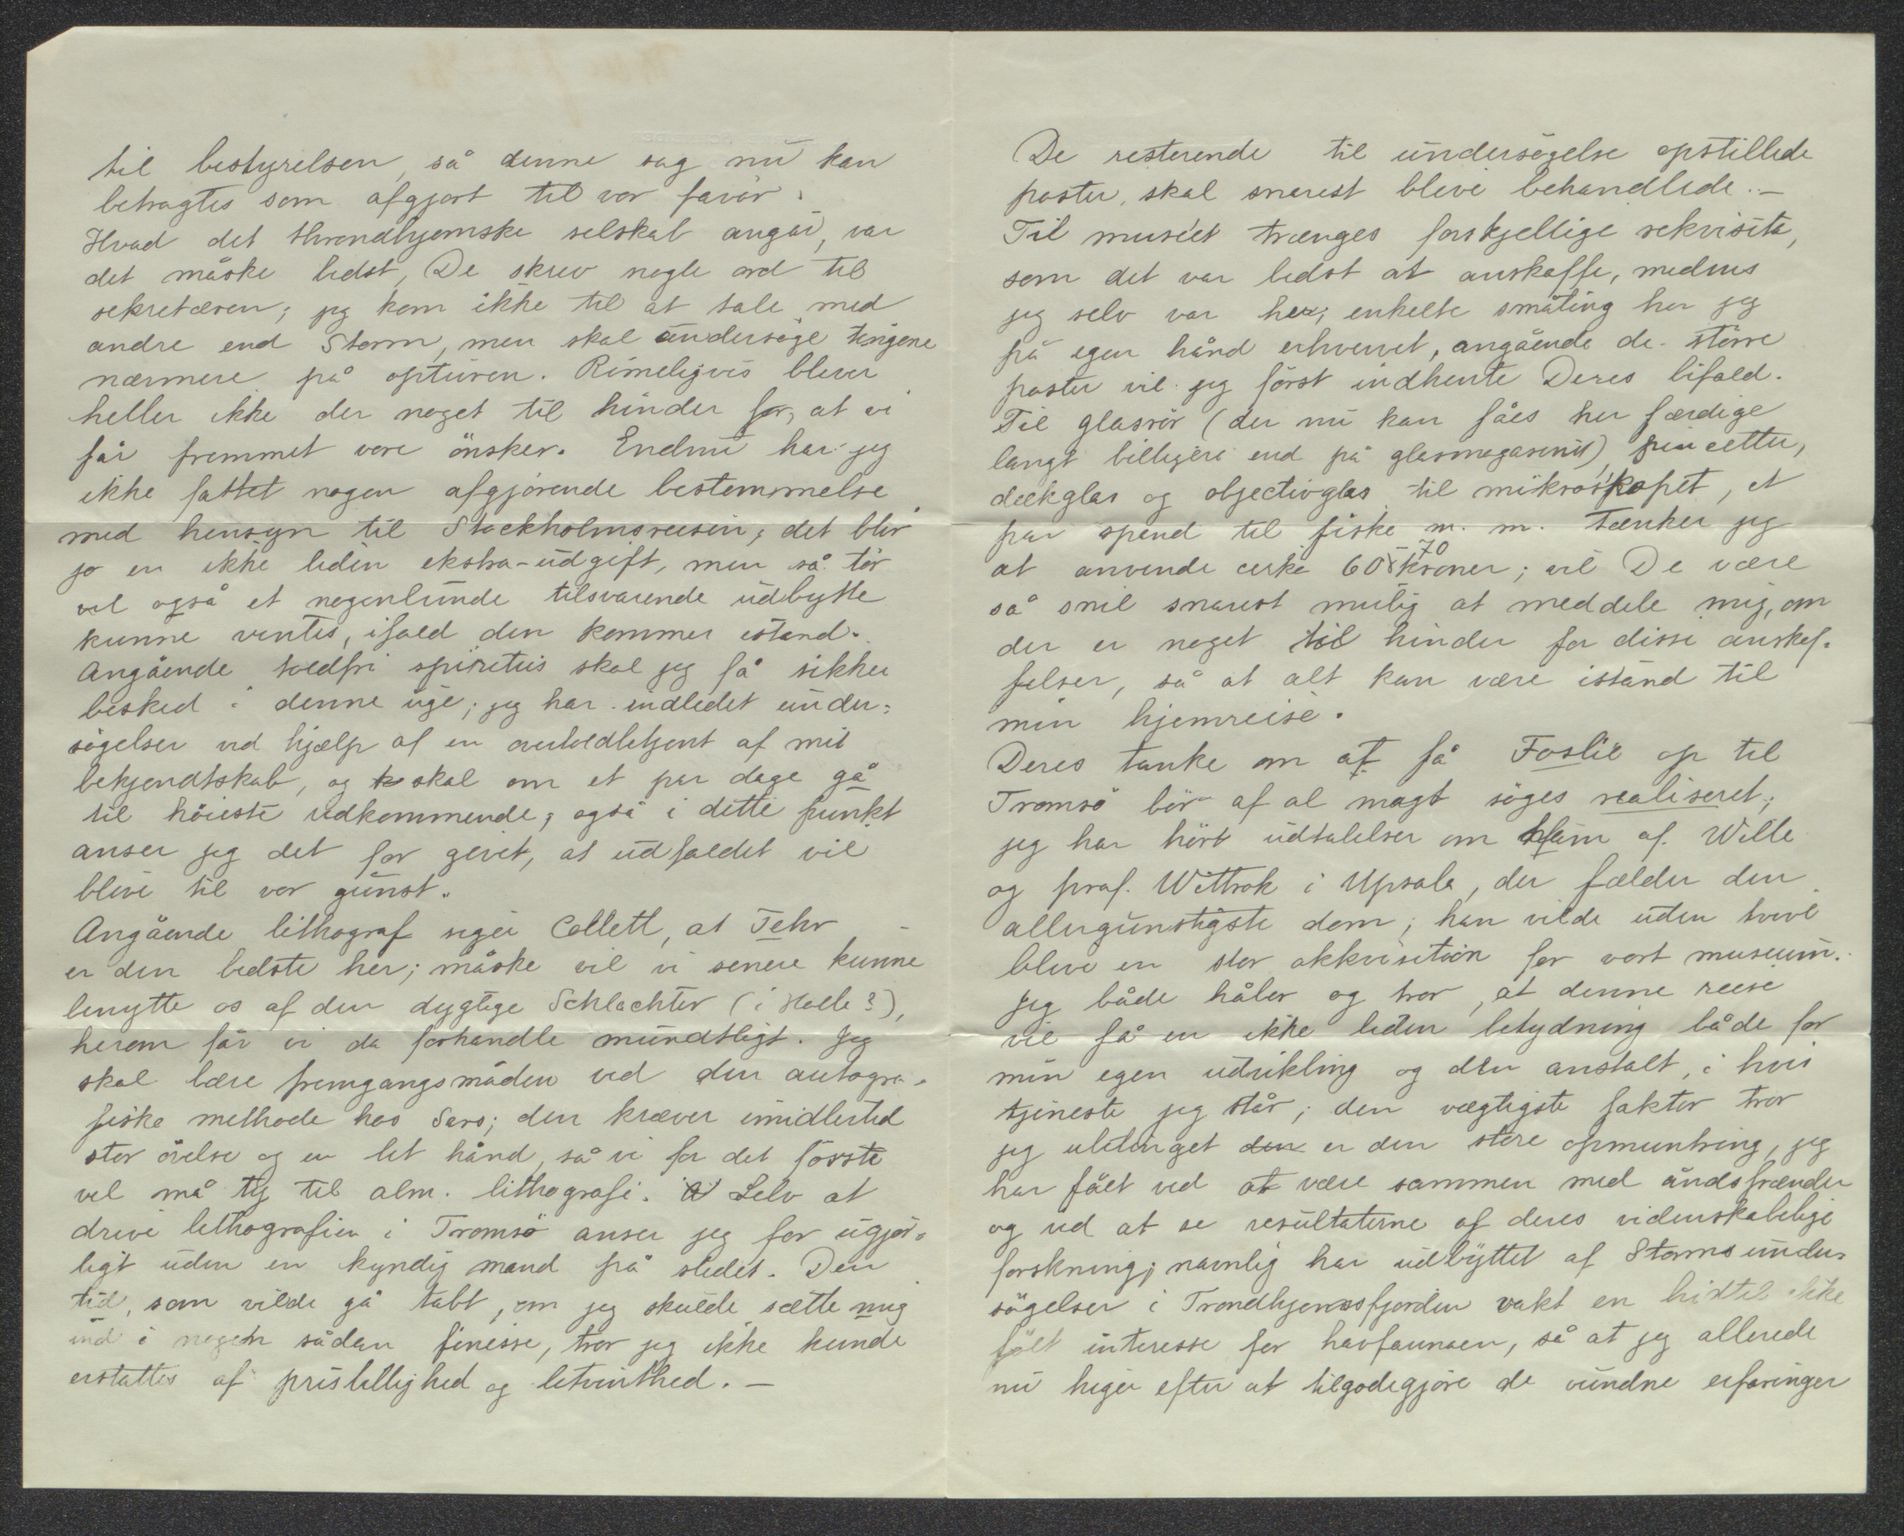 til bestyrelsen, så denne sag nu kan
betragtes som afgjort til vor favör.
Hvad det throndhjemske selskab angår, var
det måske bedst, De skrev nogle ord til
sekretæren; jeg kom ikke til at tale med
andre end Storm, men skal undersöge tingene
nærmere på opturen. Rimeligvis bliver
heller ikke der noget til hinder for, at vi
får fremmet vore önsker. Endnu har jeg
ikke fattet nogen afgjörende bestemmelse
med hensyn til Stockholmsreisen; det blir
jo en ikke liden ekstra-udgift, men så tör
vel også et nogenlunde tilsvarende udbytte
kunne ventes, ifald den kommer istand.
Angående toldfri spiritus skal jeg få sikker
besked i denne uge; jeg har indledet under-
sögelser ved hjælp af en overtoldbetjent af mit
bekjendtskab, og skal om et par dage gå
til höieste vedkommende; også i dette punkt
anser jeg det for givet, at udfaldet vil
blive til vor gunst.
Angående lithograf siger Collett, at Fehr
er den bedste her; måske vil vi senere kunne
benytte os af den dygtige Schlachter (i Halle?),
herom får vi da forhandle mundtligt. Jeg
skal lære fremgangsmåden ved den autogra-
fiske methode hos Sars; den kræver imidlertid
stor övelse og en let hånd, så vi for det förste
vel må ty til alm. lithografi. Selv at
drive lithografien i Tromsö anser jeg for ugjör-
ligt uden en kyndig mand på stedet. Den
tid, som vilde gå tabt, om jeg skulde sætte mig
ind i nogen sådan finesse, tror jeg ikke kunde
erstattes af prisbillighed og letvinthed. —
De resterende til undersögelse opstillede
poster, skal snarest blive behandlede. —
Til muséet trænges forskjellige rekvisita,
som det var bedst at anskaffe, medens
jeg selv var her; enkelte småting har jeg
på egen hånd erhvervet, angående de större
poster vil jeg först indhente Deres bifald.
Til glasrör (der nu kan fåes her færdige
langt billigere end på glasmagasinet), pincetter,
dækglas og objectivglas til mikroskopet, et
par spend til fiske m. m. tænker jeg
at anvende cirka 60-70 kroner; vil De være
så snil snarest mulig at meddele mig, om
der er noget til hinder for disse anskaf-
felser, så at alt kan være istand til
min hjemreise.
Deres tanke om at få Foslie op til
Tromsö bör af al magt söges realiseret;
jeg har hört udtalelser om ham af Wille
og prof. Wittrok i Upsala, der fælder den
allergunstigste dom; han vilde uden tvivl
blive en stor akkvisition for vort museum.
Jeg både håber og tror, at denne reise
vil få en ikke liden betydning både for
min egen udvikling og den anstalt, i hvis
tjeneste jeg står; den vægtigste faktor tror
jeg ubetinget den er den store opmuntring, jeg
har fået ved at være sammen med åndsfrænder
og ved at se resultaterne af deres videnskabelige
forskning; navnlig har udbyttet af Storms under-
sögelser i Trondhjemsfjorden vakt en hidtil ikke
fölt interesse for havfaunaen, så at jeg allerede
nu higer efter at tilgodegjöre de vundne erfaringer